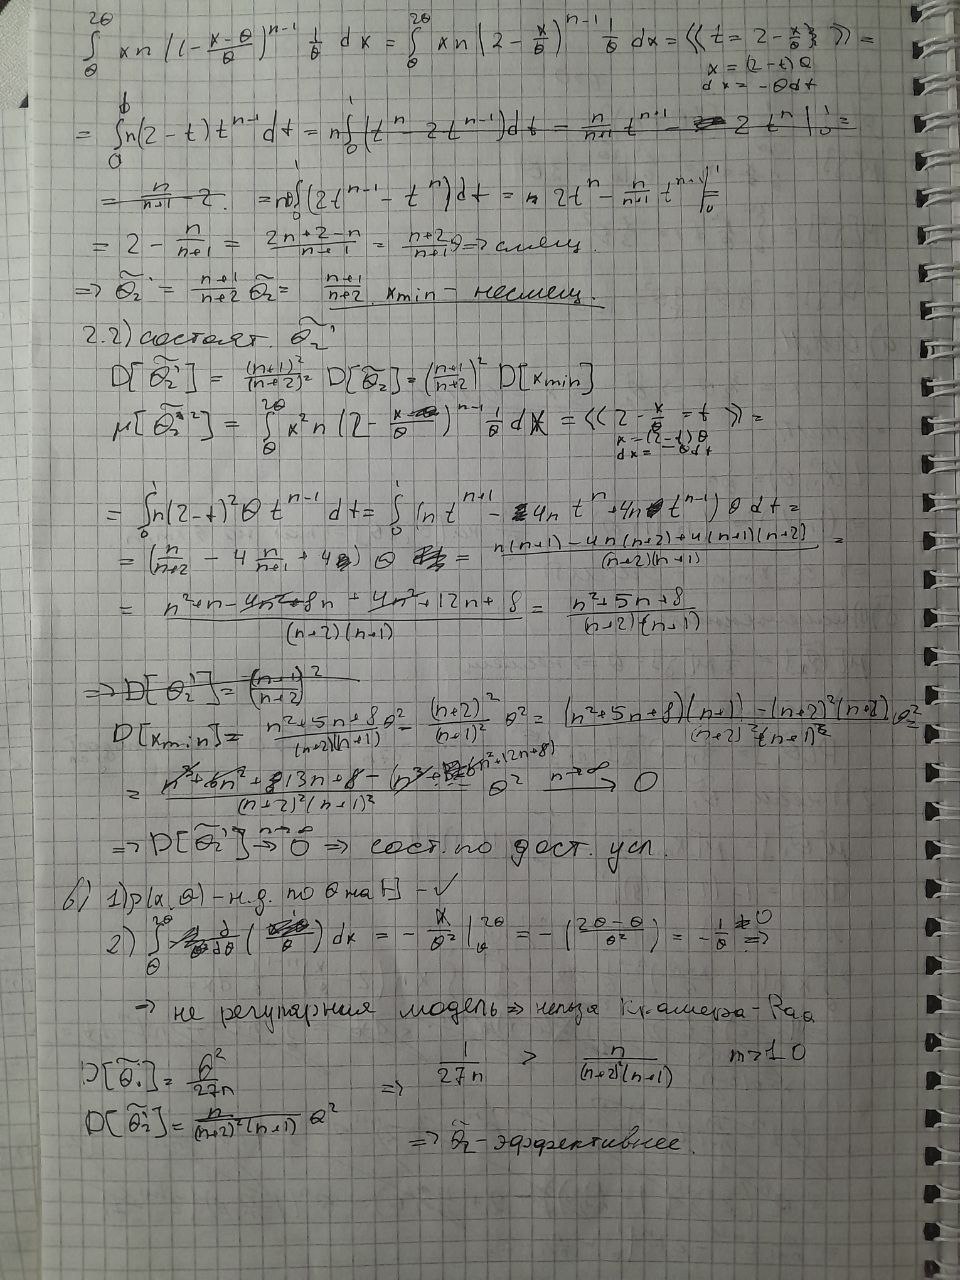 ∫_θ^{2θ} x n (1 - (x-θ)/θ)^{n-1} 1/θ dx = ∫_θ^{2θ} x n (2 - x/θ)^{n-1} 1/θ dx = << t = 2 - x/θ } >> =
x = (2-t)θ
dx = -θdt
= ∫_0^1 n(2-t) t^{n-1} dt = n∫_0^1 (t^n - 2t^{n-1}) dt = n/(n+1) t^{n+1} - 2 t^n |_0^1 =
= n/(n+1) - 2. = nθ∫_0^1 (2t^{n-1} - t^n) dt = 2t^n - n/(n+1) t^{n+1} |_0^1 =
= 2 - n/(n+1) = (2n+2-n)/(n+1) = (n+2)/(n+1) θ => смещ.
=> θ̃₂' = (n+1)/(n+2) θ̃₂ = (n+1)/(n+2) xmin - несмещ.
2.2) состоят. θ̃₂'
D[θ̃₂'] = (n+1)²/(n+2)² D[θ̃₂] = ((n+1)/(n+2))² D[xmin]
μ[θ̃₂²] = ∫_θ^{2θ} x² n (2 - x/θ)^{n-1} 1/θ dx = << 2 - x/θ = t >> =
x = (2-t)θ
dx = -θdt
= ∫_0^1 n(2-t)² θ t^{n-1} dt = ∫_0^1 (n t^{n+1} - 4n t^n + 4n t^{n-1}) θ dt =
= (n/(n+2) - 4 n/(n+1) + 4) θ = (n(n+1) - 4n(n+2) + 4(n+1)(n+2))/((n+2)(n+1)) =
= (n²+n-4n²-8n+4n²+12n+8)/((n+2)(n+1)) = (n²+5n+8)/((n+2)(n+1))
=> D[θ₂'] = ((n+1)/(n+2))²
D[xmin] = (n²+5n+8)/((n+2)(n+1)) θ² - (n+2)²/(n+1)² θ² = ((n²+5n+8)(n+1) - (n+2)²(n+2))/((n+2)²(n+1)²) θ²
= (n³+6n²+13n+8 - (n³+6n²+12n+8))/((n+2)²(n+1)²) θ² →^{n→∞} 0
=> D[θ̃₂'] →^{n→∞} 0 => сост. по дост. усл.
б) 1) p(x,θ) - н.д. по θ на H - ✓
2) ∫_θ^{2θ} d/dθ (1/θ) dx = - x/θ² |_θ^{2θ} = - ((2θ-θ)/θ²) = - 1/θ ≠ 0 =>
→ не регулярная модель => нельзя Крамера-Рао
D[θ̃₁] = θ²/27n => 1/27n > n/((n+2)²(n+1)) n>10
D[θ̃₂'] = n/((n+2)²(n+1)) θ²
=> θ̃₂ - эффективнее.